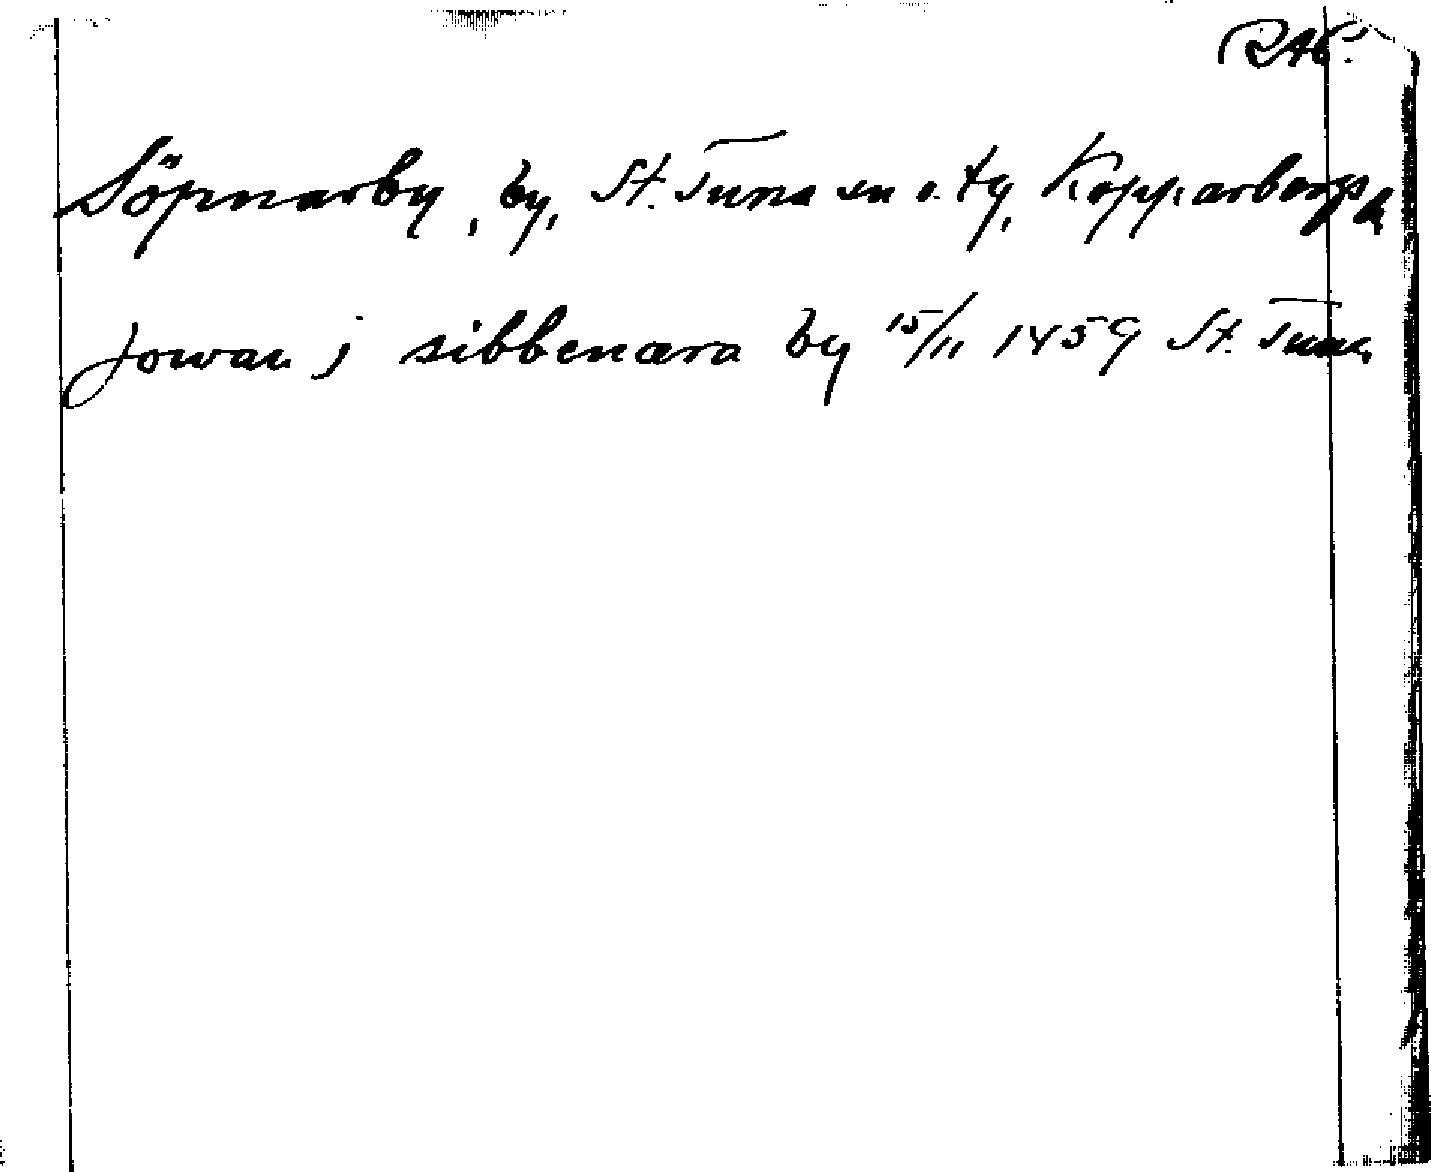 Söpnarby, by, St. Tuna sn o. tg, Kopparbergs
Jowan j sibbenæra by 15/11 1459 St. Tuna